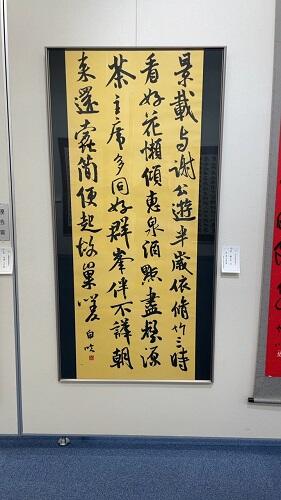 景載与謝公遊半歲依脩竹三時
看好花懶傾惠泉酒點盡壑源
茶主席多同好群峯伴不譁朝
来還蠹簡便起故巢嗟